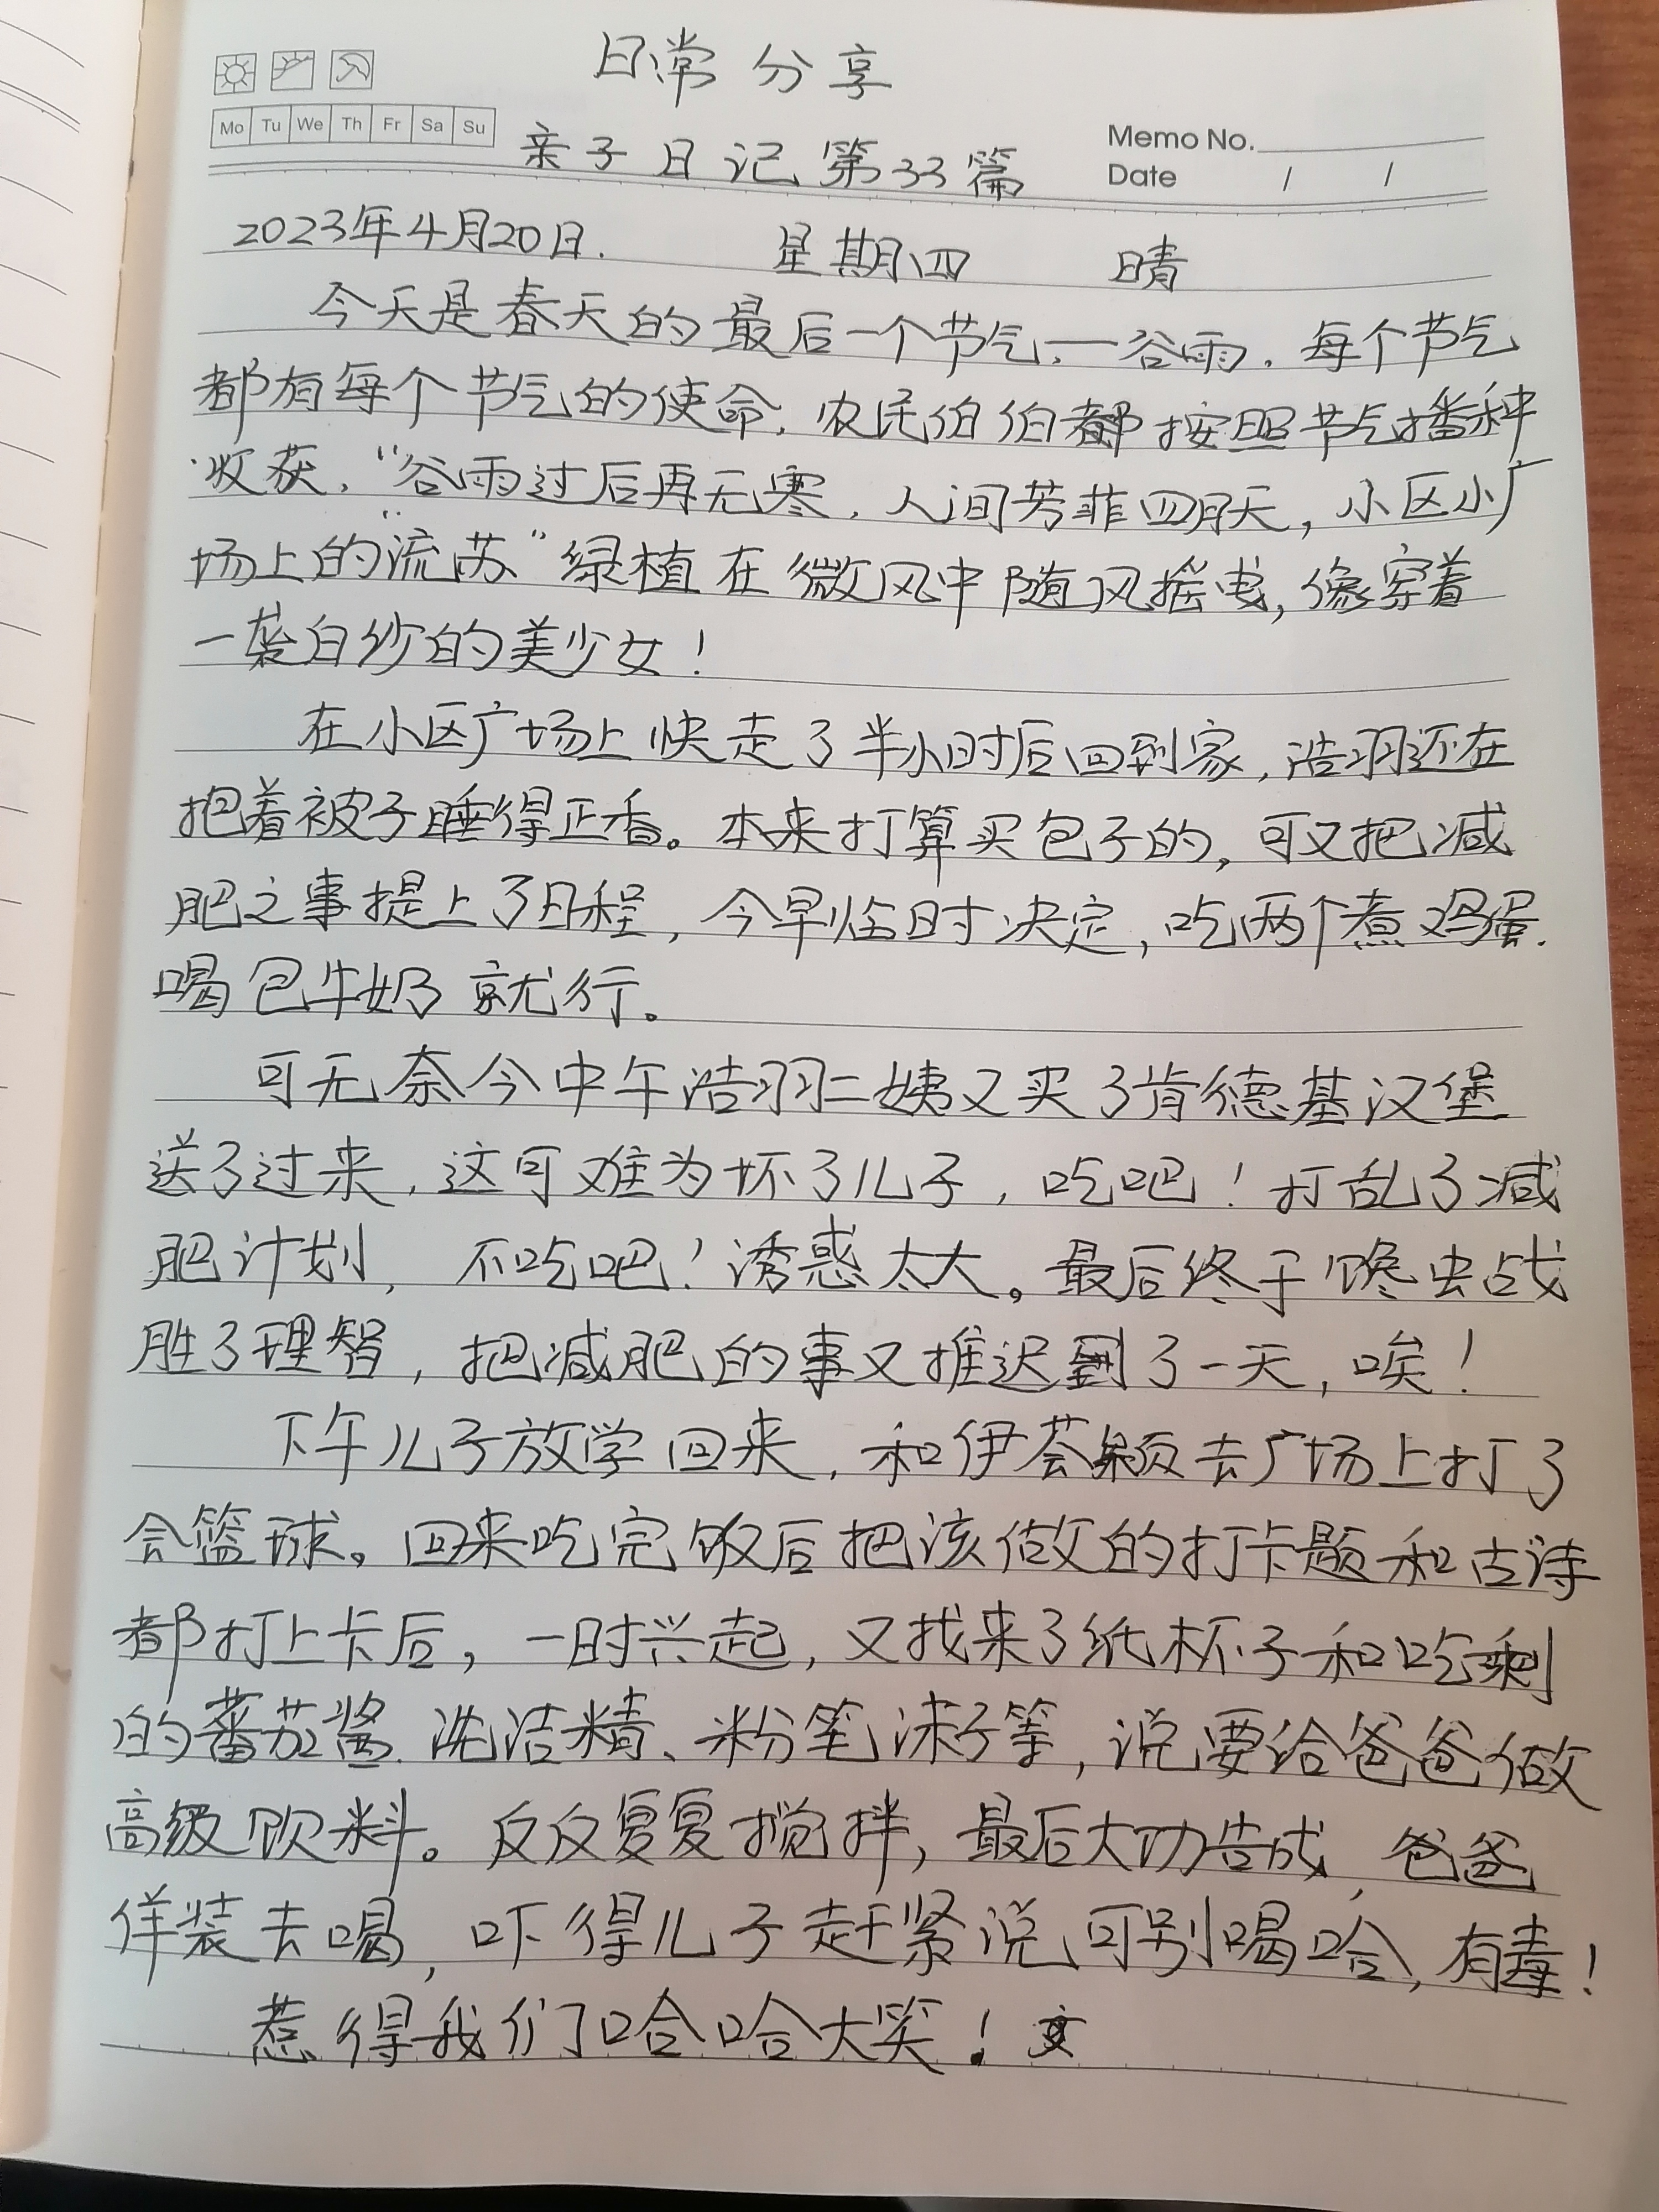 日常分享
Mo Tu We Th Fr Sa Su
Memo No.
亲子日记第33篇
Date / /
2023年4月20日. 星期四 晴
今天是春天的最后一个节气.一谷雨.每个节气
都有每个节气的使命.农民伯伯都按照节气播种
收获."谷雨过后再无寒.人间芳菲四月天,小区小广
场上的"流苏"绿植在微风中随风摇曳,像穿着
一袭白纱的美少女!
在小区广场上快走了半小时后回到家,浩羽还在
抱着被子睡得正香。本来打算买包子的,可又把减
肥之事提上了日程,今早临时决定,吃两个煮鸡蛋.
喝包牛奶就行。
可无奈今中午浩羽二姨又买了肯德基汉堡
送了过来,这可难为坏了儿子,吃吧!打乱了减
肥计划,不吃吧!诱惑太大。最后终于馋虫战
胜了理智,把减肥的事又推迟到了一天,唉!
下午儿子放学回来,和伊荟颖去广场上打了
会篮球。回来吃完饭后把该做的打卡题和古诗
都打上卡后,一时兴起,又找来了纸杯子和吃剩
的番茄酱.洗洁精、粉笔沫子等,说要给爸爸做
高级饮料。反反复复搅拌,最后大功告成,爸爸
佯装去喝,吓得儿子赶紧说可别喝哈,有毒!
惹得我们哈哈大笑!